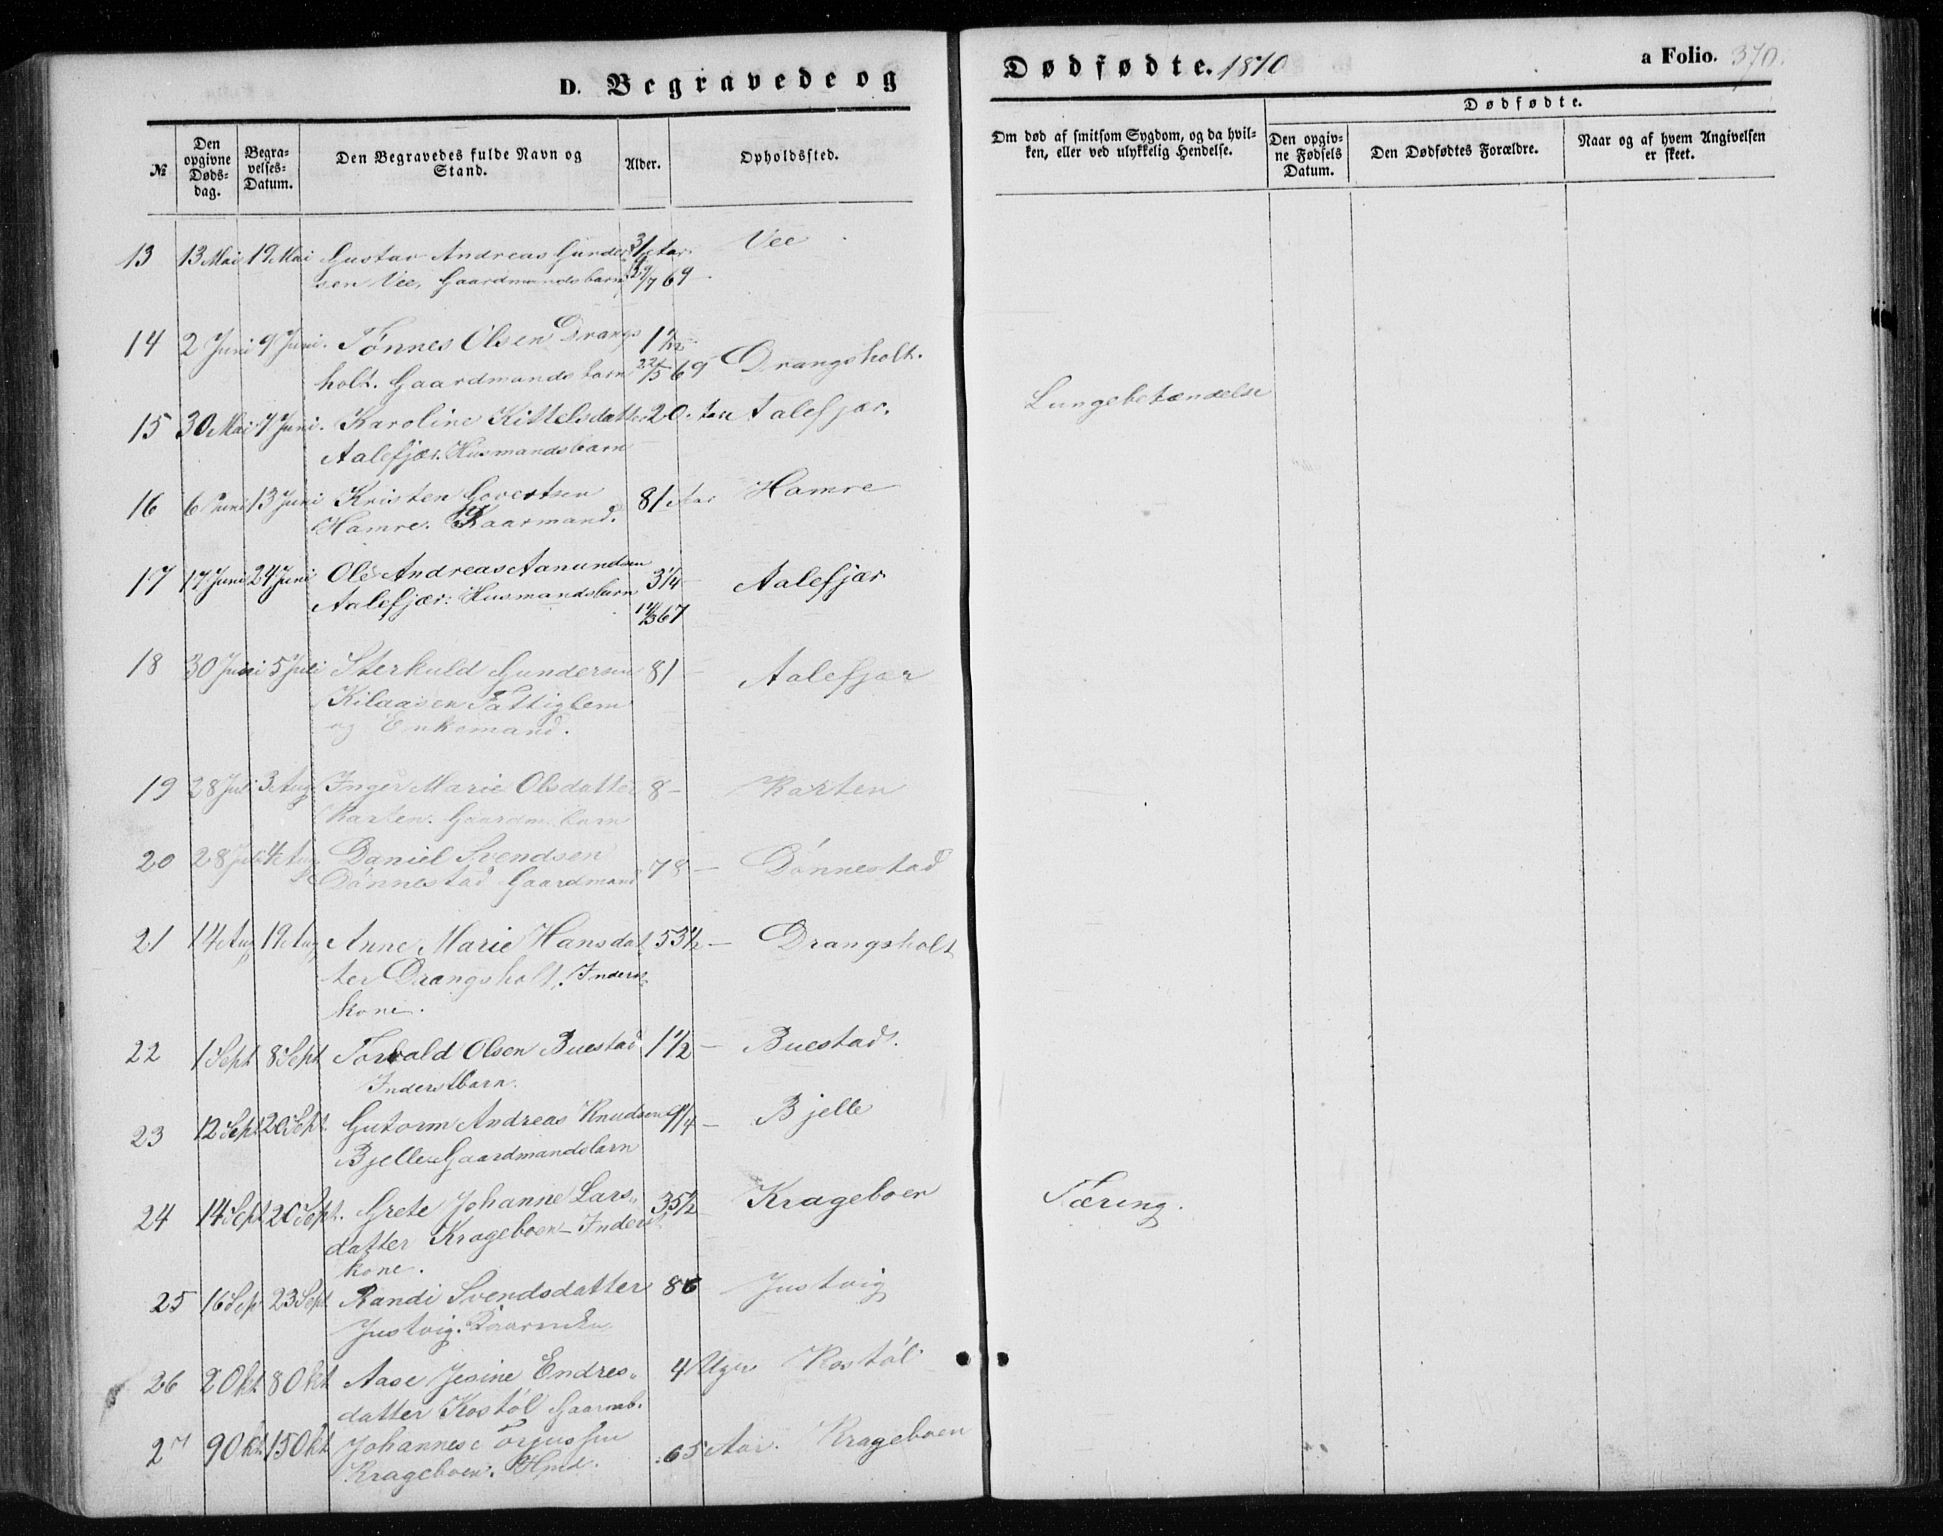 D. Begravede og
Dødfødte. 1870
a Folio. 370.
№
Den opgivne Døds-dag.
Begra-velses-Datum.
Den Begravedes fulde Navn og Stand.
Alder.
Opholdssted.
Om død af smitsom Sygdom, og da hvil-ken, eller ved ulykkelig Hendelse.
Dødfødte.
Den opgiv-ne Fødsels Datum.
Den Dødfødtes Forældre.
Naar og af hvem Angivelsen er skeet.
13 13 Mai 19 Mai Gustav Andreas Gunder 3/4 Aar Vee
sen Vee, Gaardmandsbarn /7 69
14 2 Juni 9 Juni. Tønnes Olsen Drangs 1
holt. Gaardmandsbarn 22/5 69 Drangsholt.
15 30 Mai 7 Juni. Karoline Kittelsdatter 20 Aar Aalefjær. Lungebetændelse
Aalefjær. Husmandsbarn
16 6 Juni 13 Juni Kristen Govertsen 81 Aar Hamre
Hamre. Kaarmand.
17 17 Juni 24 Juni Ole Andreas Aanundsen 3 1/4 Aalefjær
Aalefjær. Husmandsbarn 14/3 67
18 30 Juni 5 Juli Sterkuld Gundersen 81 – Aalefjær
Kilaasen Fattiglem
og Enkemand.
19 28 Juli 3 Aug Inger Marie Olsdatter 8 – Karten
Karten. Gaardm. barn
20 28 Juli 4 Aug Daniel Svendsen 78 – Dønnestad
Dønnestad Gaardmand
21 14 Aug 19 Aug Anne Marie Hansdat 53 1/2 – Drangsholt
ter Drangsholt. Inderst
kone.
22 1 Sept 8 Sept Torvald Olsen Buestad 1 1/2 – Buestad.
Inderstbarn.
23 12 Sept 20 Sept. Gutorm Andreas Knudsen 1/4 – Bjelle
Bjelle Gaardmandsbarn
24 14 Sept 20 Sept. Grete Johanne Lars- 35 1/2 Krageboen Tæring.
datter Krageboen – Inderst
kone.
25 16 Sep 23 Sept Randi Svendsdatter 86 Justvig
Justvig.
26 2 Okt 8 Okt Aase Jesine Endres- 4 Uger Kostøl
datter Kostøl Gaarmb.
27 9 Okt 15 Okt Johannes Torjussen 65 Aar. Krageboen
Krageboen. Hmd.